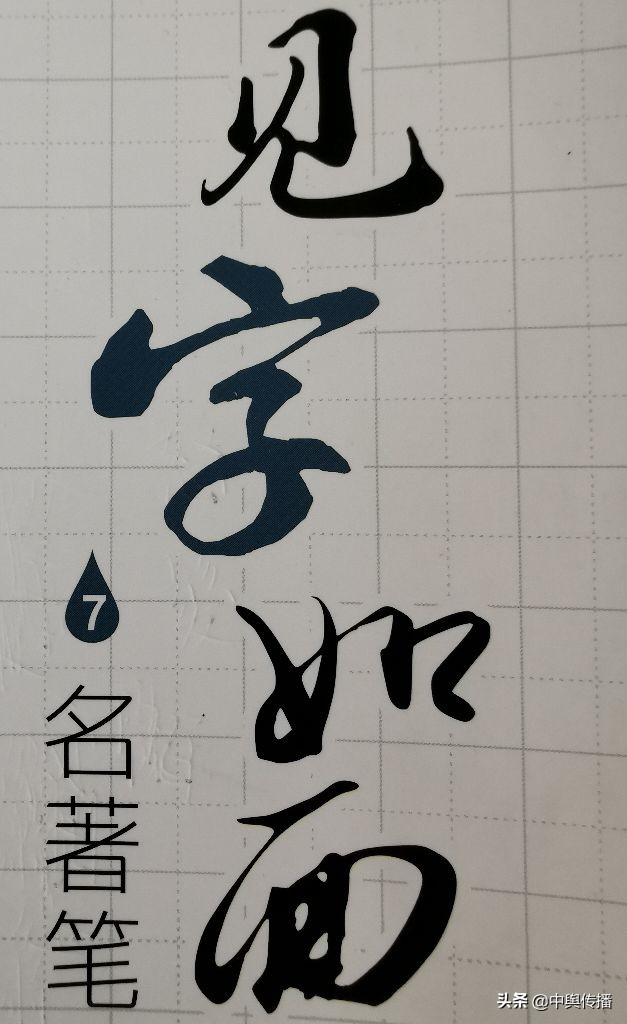 见字如面
7
名著笔
头条 @中舆传播